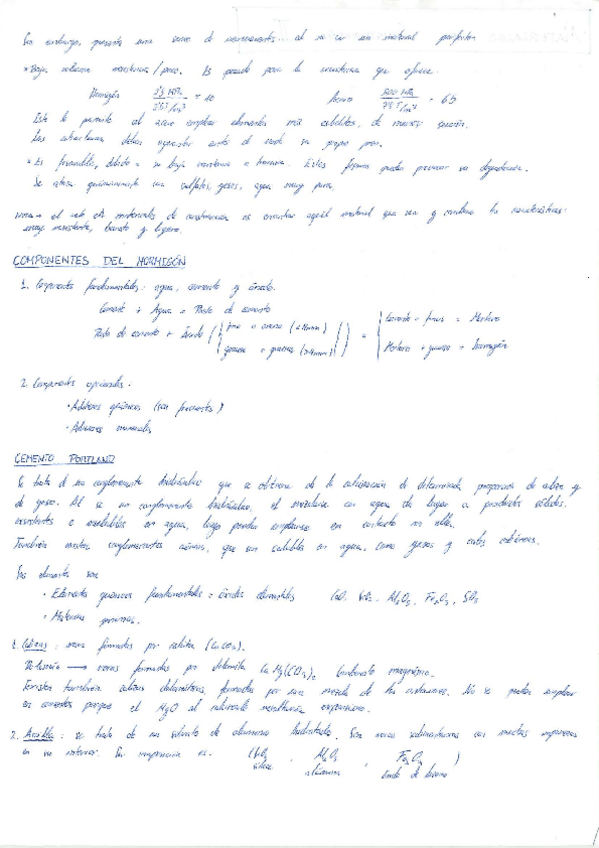 Sin embargo, presenta una serie de inconvenientes al no ser un material perfecto:
• Baja relación resistencia / peso. Es pesado para la resistencia que ofrece.
Hormigón 25 MPa / 2'5 T/m³ = 10 Acero 500 MPa / 7'85 T/m³ = 65
Esto le permite al acero emplear elementos más esbeltos, de menor sección.
Las estructuras deben aguantar antes de nada su propio peso.
• Es fisurable, debido a su baja resistencia a tracción. Estas fisuras pueden provocar su degradación.
Se ataca químicamente con sulfatos, gases, agua muy pura.
el reto de materiales de construcción es encontrar aquél material que sea y contenga las características:
muy resistente, barato y ligero.
COMPONENTES DEL HORMIGÓN
1. Componentes fundamentales: agua, cemento y árido.
Cemento + Agua = Pasta de cemento
Pasta de cemento + Árido ( fino o arena (<4mm) = Cemento + finos = Mortero
grueso o gravas (>4mm) ) Mortero + grueso = Hormigón
2. Componentes opcionales:
• Aditivos químicos (son frecuentes)
• Adiciones minerales
CEMENTO PORTLAND
Se trata de un conglomerante hidráulico que se obtiene de la calcinación de determinada proporción de caliza y
de yeso. Al ser un conglomerante hidráulico, al mezclarse con agua da lugar a productos sólidos,
resistentes e insolubles en agua, luego pueden emplearse en contacto con ella.
También existen conglomerantes aéreos, que son solubles en agua, como yesos y cales aéreas.
Sus elementos son
• Elementos químicos fundamentales = óxidos elementales CaO, SiO₂, Al₂O₃, Fe₂O₃, SO₃
• Materias primas.
1. Calizas: rocas formadas por calcita (CaCO₃).
Dolomía → rocas formadas por dolomita CaMg(CO₃)₂ Carbonato magnésico.
también calizas dolomíticas, formadas por una mezcla de las anteriores. No se pueden emplear
en cementos porque el MgO al hidratarse expansiones.
2. Arcilla: se trata de un silicato de aluminio hidratado. Son rocas sedimentarias con muchas impurezas
en su interior. Su composición es: (SiO₂ , Al₂O₃ , Fe₂O₃ )
sílice alúmina óxido de hierro